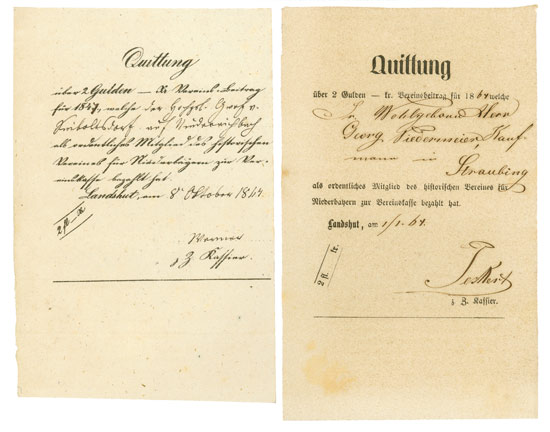 Quittung
über 2 Gulden — als Vereinsbeitrag
für 1847, welche der Hochgl. Graf v.
auf Niederaichbach
als ordentliches Mitglied des historischen
Vereines für Niederbayern zur Ver-
einskasse bezahlt hat.
Landshut, am 8 Oktober 1847.
2 fl. kr.
z. Z. Kassier.
Quittung
über 2 Gulden — kr. Vereinsbeitrag für 1864 welche
Wohlgeboren Herr
Georg Niedermeier, Kauf-
mann in
Straubing
als ordentliches Mitglied des historischen Vereines für
Niederbayern zur Vereinskasse bezahlt hat.
Landshut, am 1/1. 64.
2 fl. kr.
z. Z. Kassier.